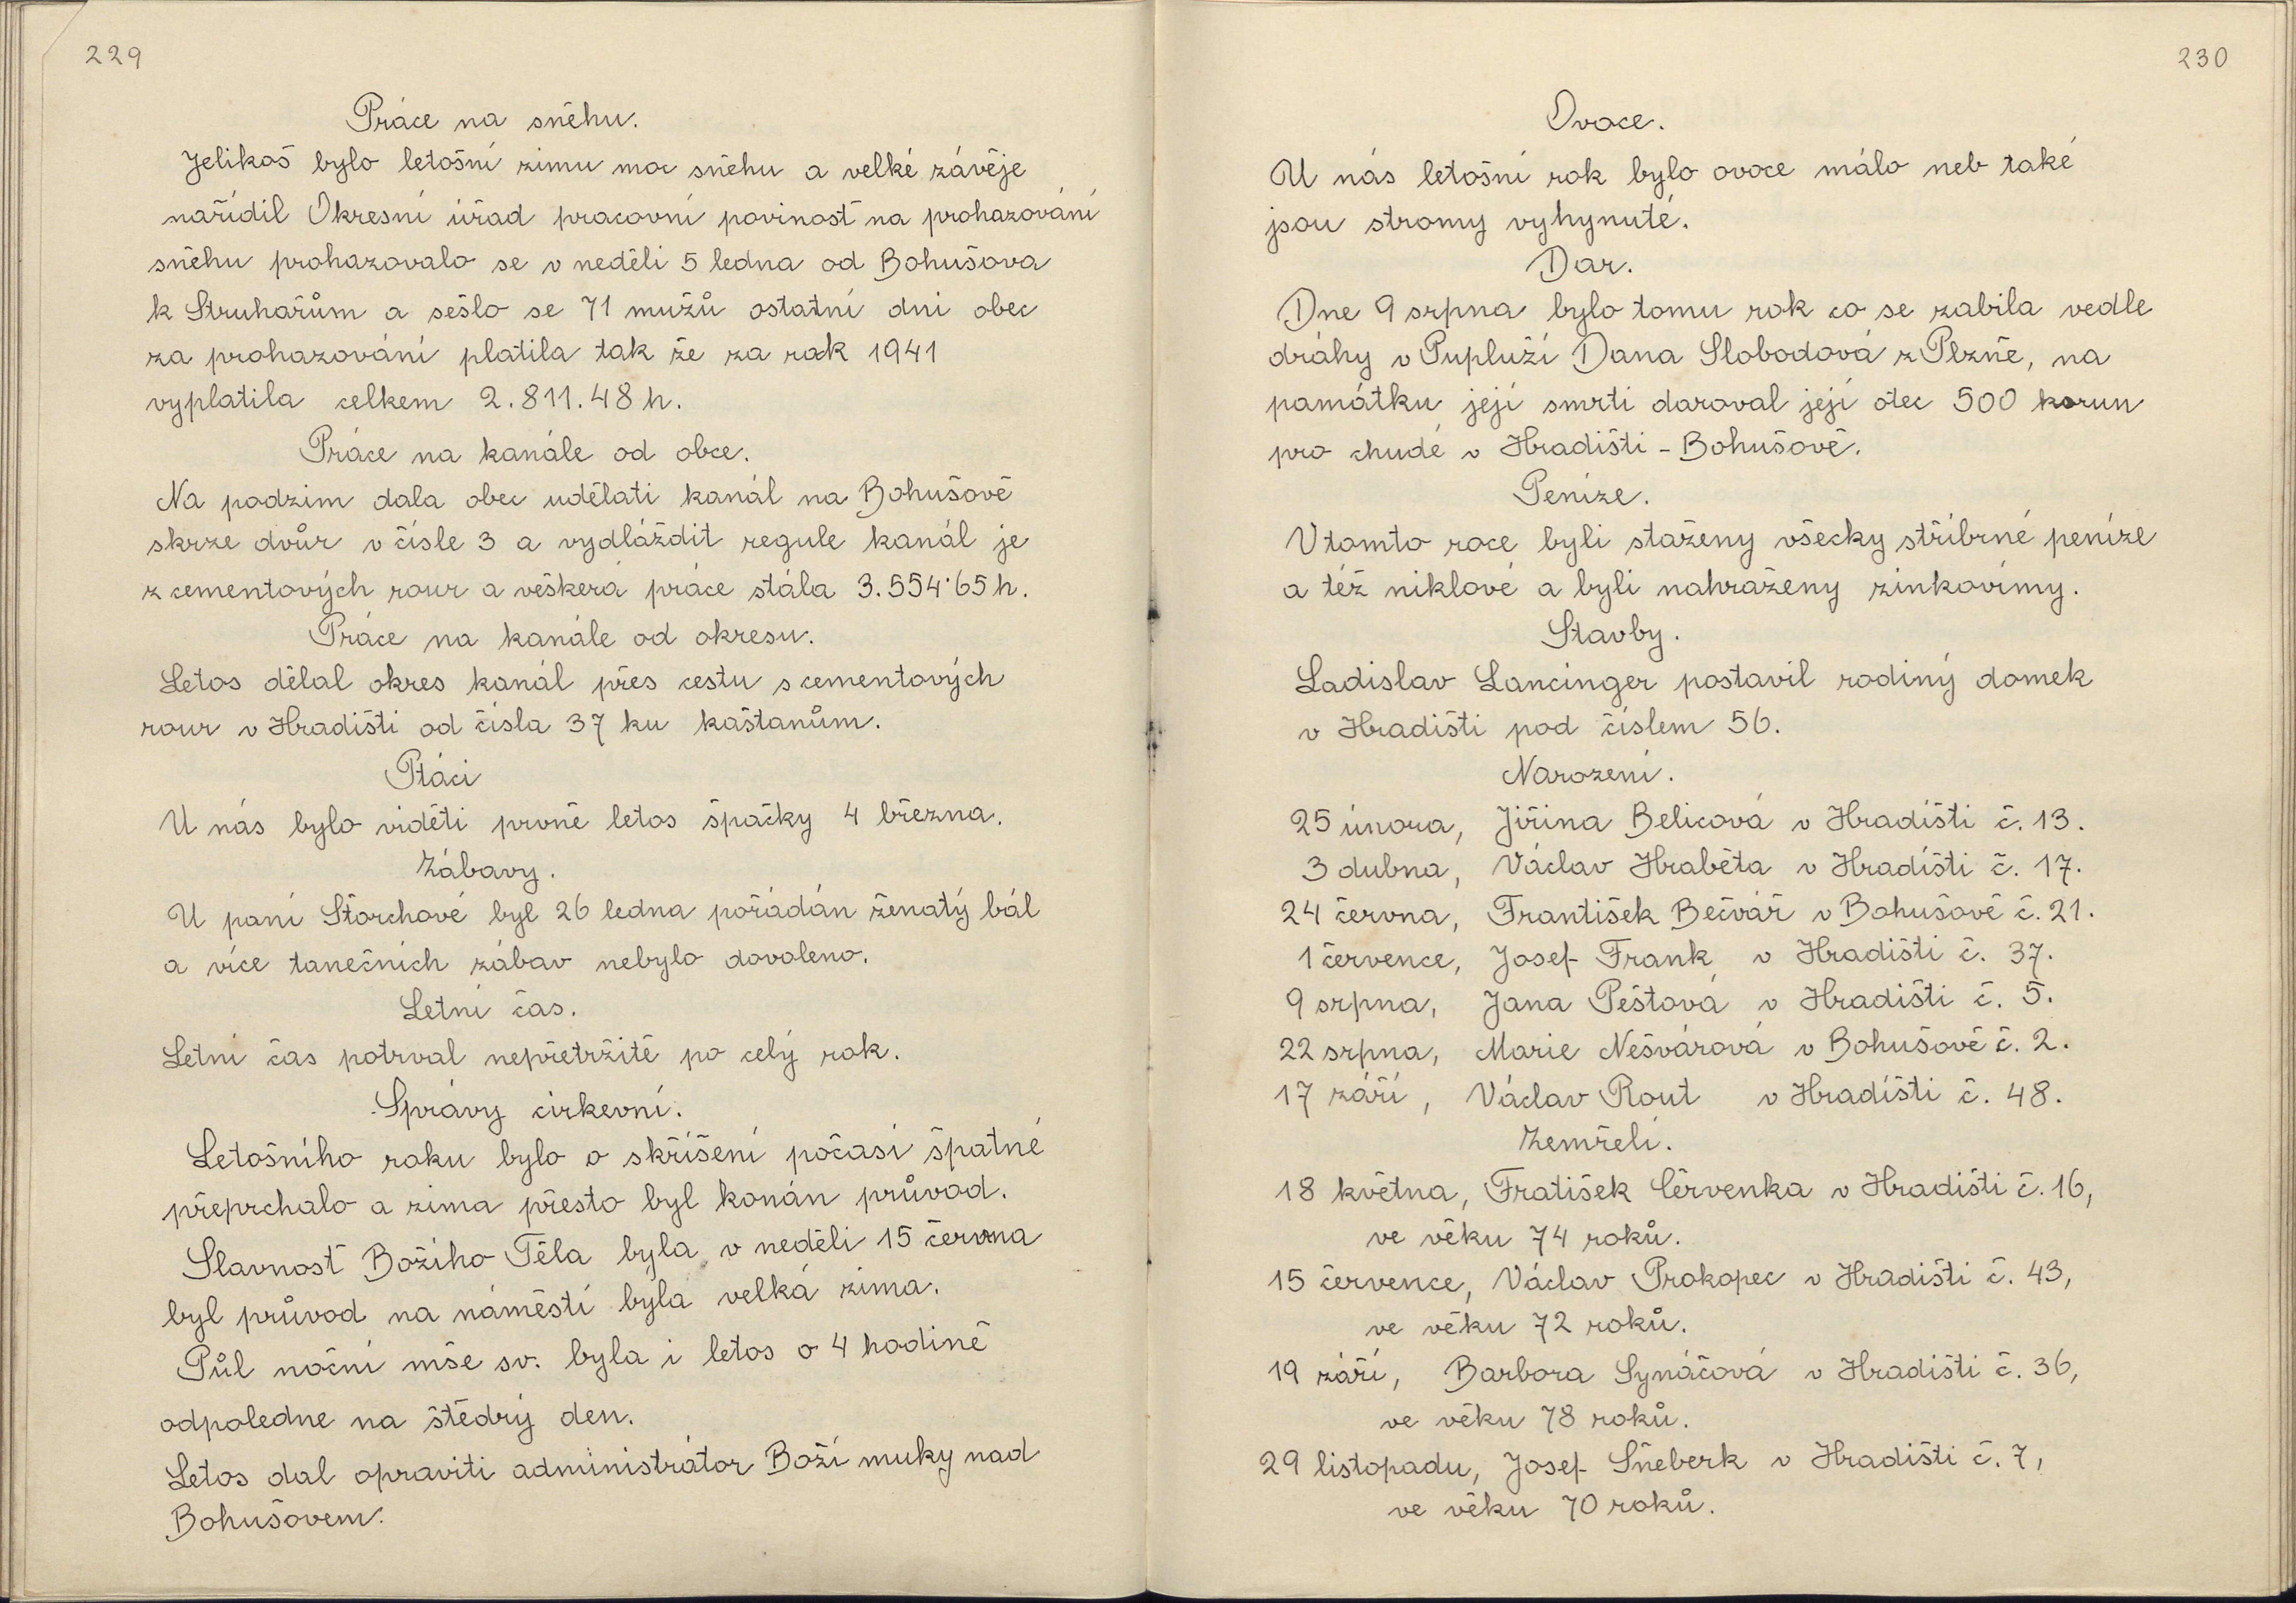 229
Práce na sněhu.
Jelikoš bylo letošní zimu moc sněhu a velké závěje
nařídil Okresní úřad pracovní povinosť na prohazování
sněhu prohazovalo se v neděli 5 ledna od Bohušova
k Struhařům a sešlo se 71 mužů ostatní dni obec
za prohazování platila tak že za rok 1941
vyplatila celkem 2.811.48 h.
Práce na kanále od obce.
Na podzim dala obec udělati kanál na Bohušově
skrze dvůr v čísle 3 a vydláždit regule kanál je
z cementových rour a veškerá práce stála 3.554·65 h.
Práce na kanále od okresu.
Letos dělal okres kanál přes cestu s cementových
rour v Hradišti od čísla 37 ku kaštanům.
Ptáci
U nás bylo viděti prvně letos špačky 4 března.
Zábavy.
U paní Štorchové byl 26 ledna pořádán ženatý bál
a více tanečních zábav nebylo dovoleno.
Letní čas.
Letní čas potrval nepřetržitě po celý rok.
Správy cirkevní.
Letošního roku bylo o skříšení počasí špatné
přeprchalo a zima přesto byl konán průvod.
Slavnosť Božího Těla byla v neděli 15 června
byl průvod na náměstí byla velká zima.
Půl noční mše sv. byla i letos o 4 hodině
odpoledne na štědrý den.
Letos dal opraviti administrátor Boží muky nad
Bohušovem.
230
Ovoce.
U nás letošní rok bylo ovoce málo neb také
jsou stromy vyhynuté.
Dar.
Dne 9 srpna bylo tomu rok co se zabila vedle
dráhy v Pupluží Dana Slobodová z Plzně, na
památku její smrti daroval její otec 500 korun
pro chudé v Hradišti - Bohušově.
Peníze.
V tomto roce byli staženy všecky stříbrné peníze
a též niklové a byli nahraženy zinkovímy.
Stavby.
Ladislav Lancinger postavil rodiný domek
v Hradišti pod číslem 56.
Narození.
25 února, Jiřina Belicová v Hradišti č. 13.
3 dubna, Václav Hraběta v Hradišti č. 17.
24 června, František Bečvář v Bohušově č. 21.
1 července, Josef Frank v Hradišti č. 37.
9 srpna, Jana Peštová v Hradišti č. 5.
22 srpna, Marie Nešvárová v Bohušově č. 2.
17 září, Václav Rout v Hradišti č. 48.
Zemřelí.
18 května, Fratišek Červenka v Hradišti č. 16,
ve věku 74 roků.
15 července, Václav Prokopec v Hradišti č. 43,
ve věku 72 roků.
19 září, Barbora Synáčová v Hradišti č. 36,
ve věku 78 roků.
29 listopadu, Josef Šneberk v Hradišti č. 7,
ve věku 70 roků.